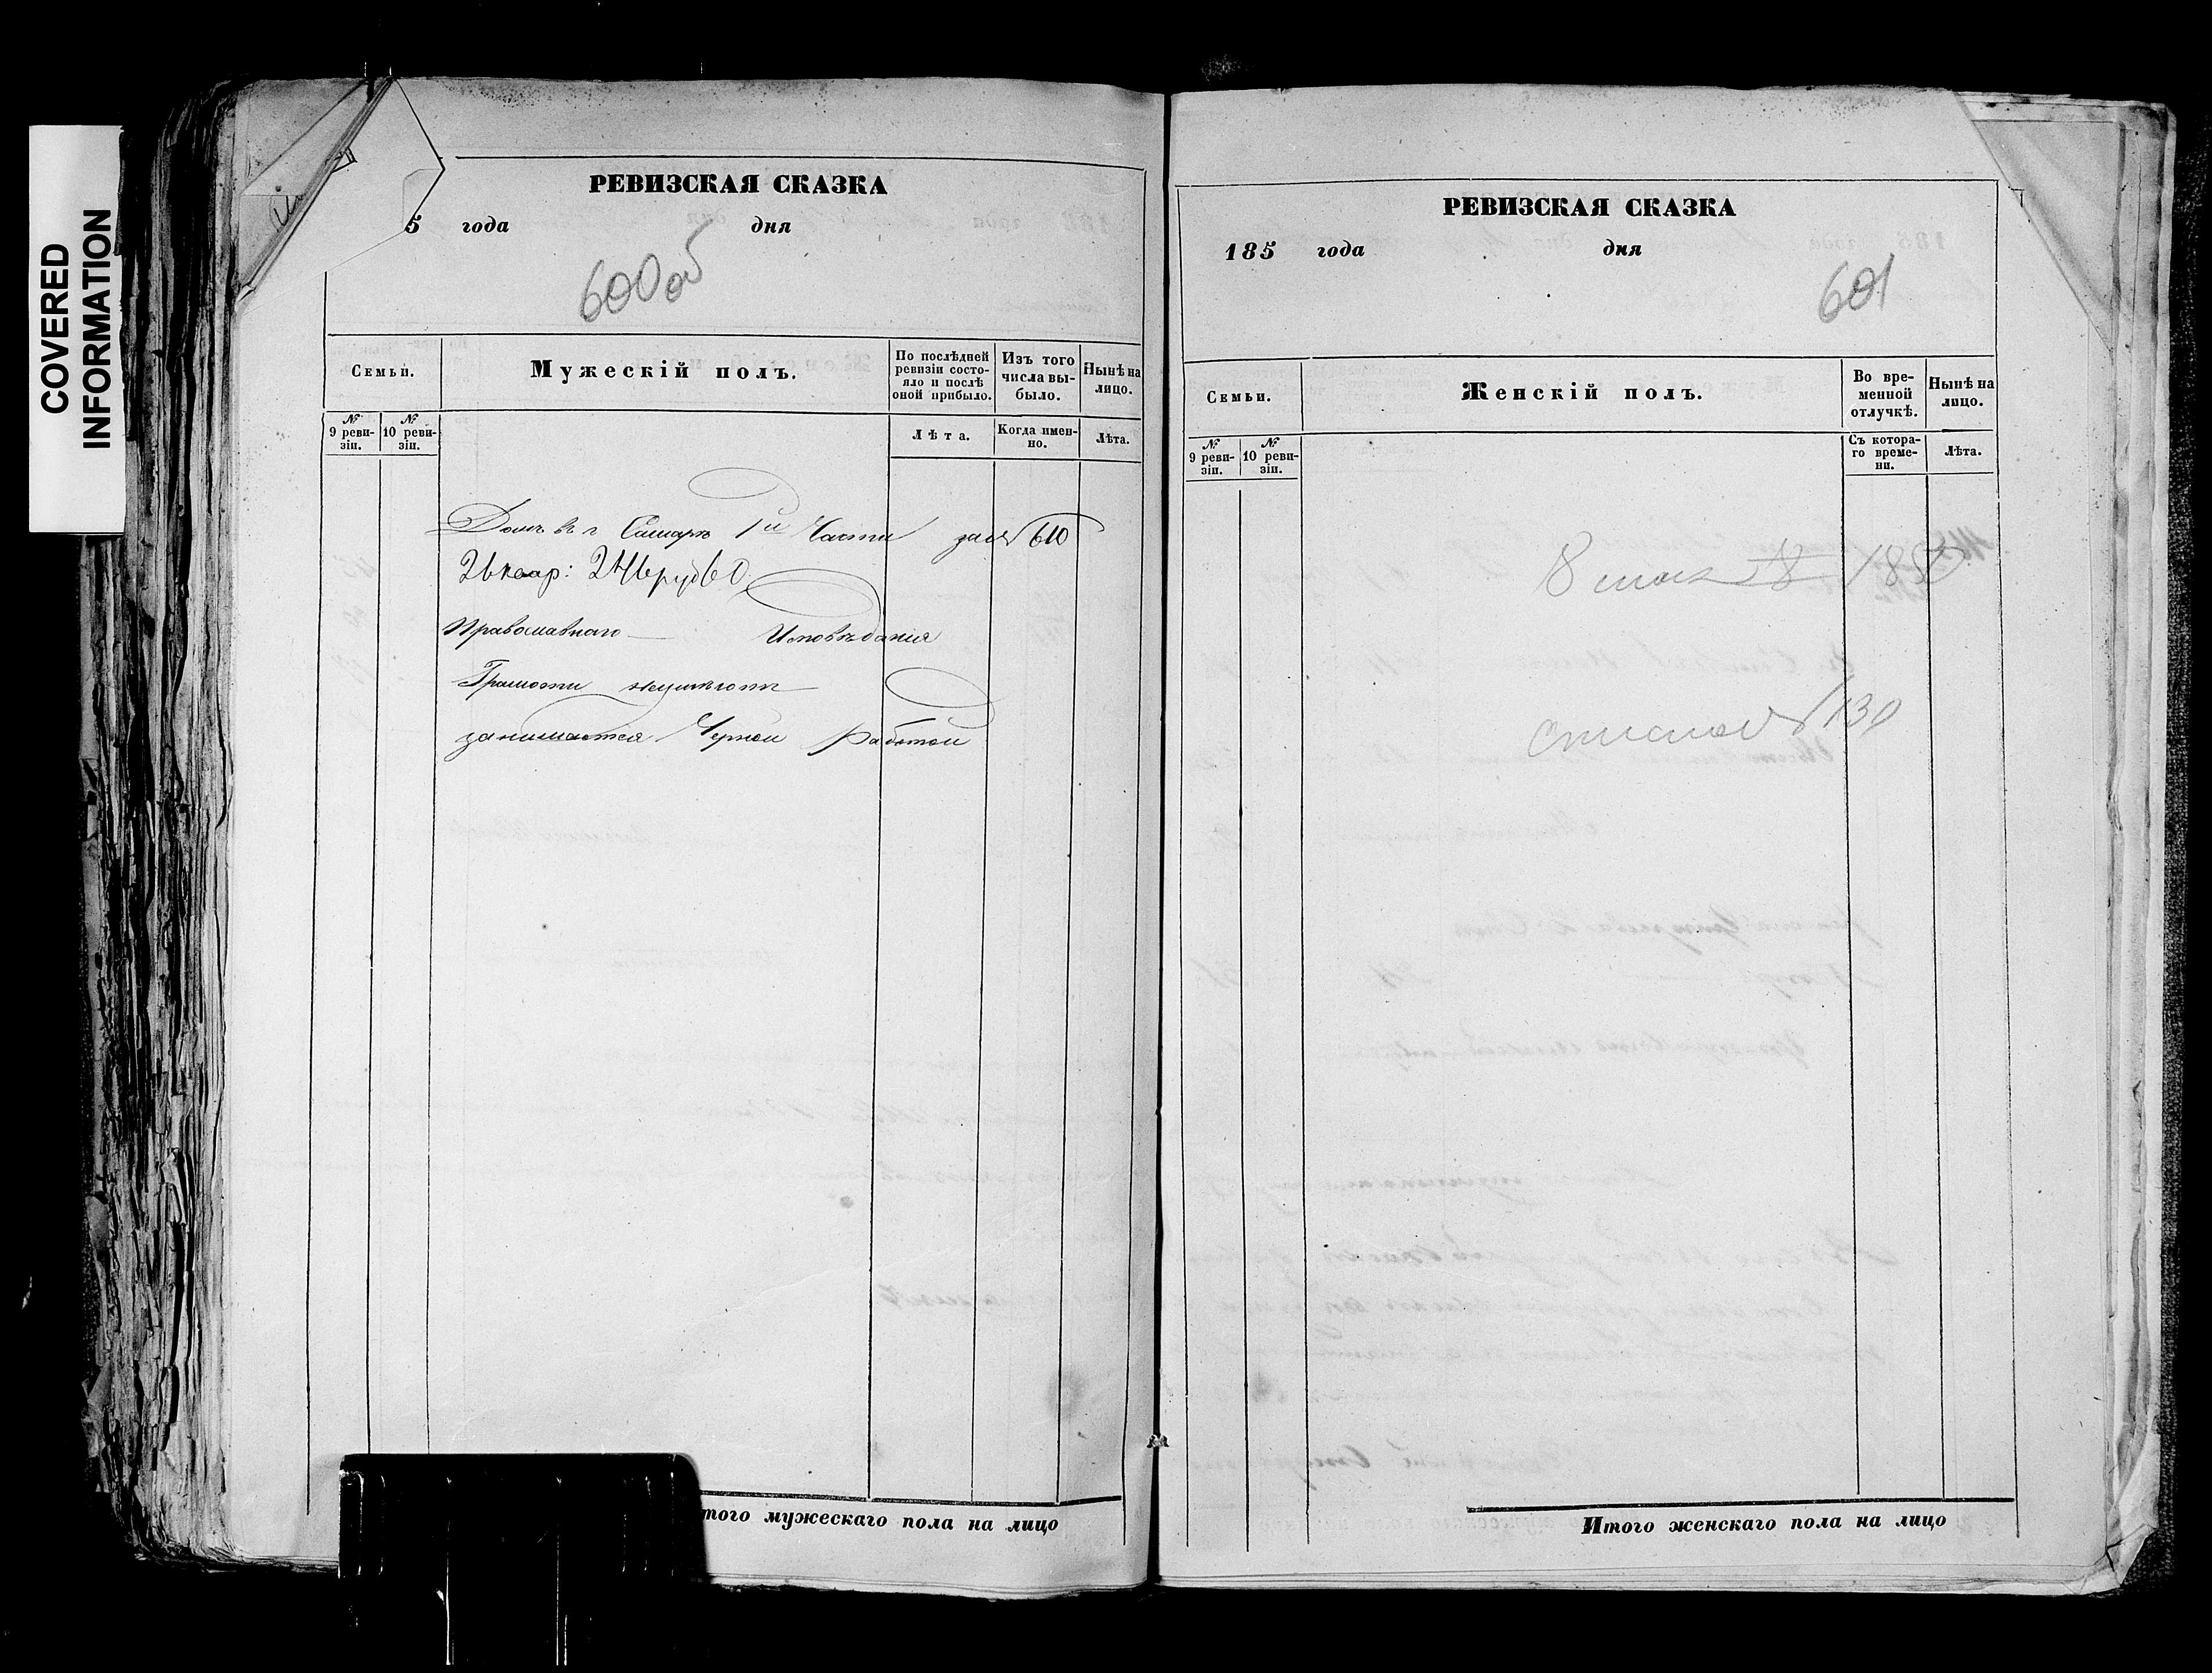 COVERED
INFORMATION
РЕВИЗСКАЯ СКАЗКА
5 года дня
600 об
Семьи.
Мужескій полъ.
По послѣдней
ревизіи состо-
яло и послѣ
оной прибыло.
Изъ того
числа вы-
было.
Нынѣ на
лицо.
№
9 реви-
зіи.
№
10 реви-
зіи.
Лѣта.
Когда имен-
но.
Лѣта.
Домъ въ г Самарѣ 1й Части 610
Православнаго Исповѣданія
Грамоти неумѣютъ
занимается Черной Работой
того мужескаго пола на лицо
РЕВИЗСКАЯ СКАЗКА
185 года дня
601
Семьи.
Женскій полъ.
Во вре-
менной
отлучкѣ.
Нынѣ на
лицо.
№
9 реви-
зіи.
№
10 реви-
зіи.
Съ котора-
го време-
ни.
Лѣта.
8
130
Итого женскаго пола на лицо